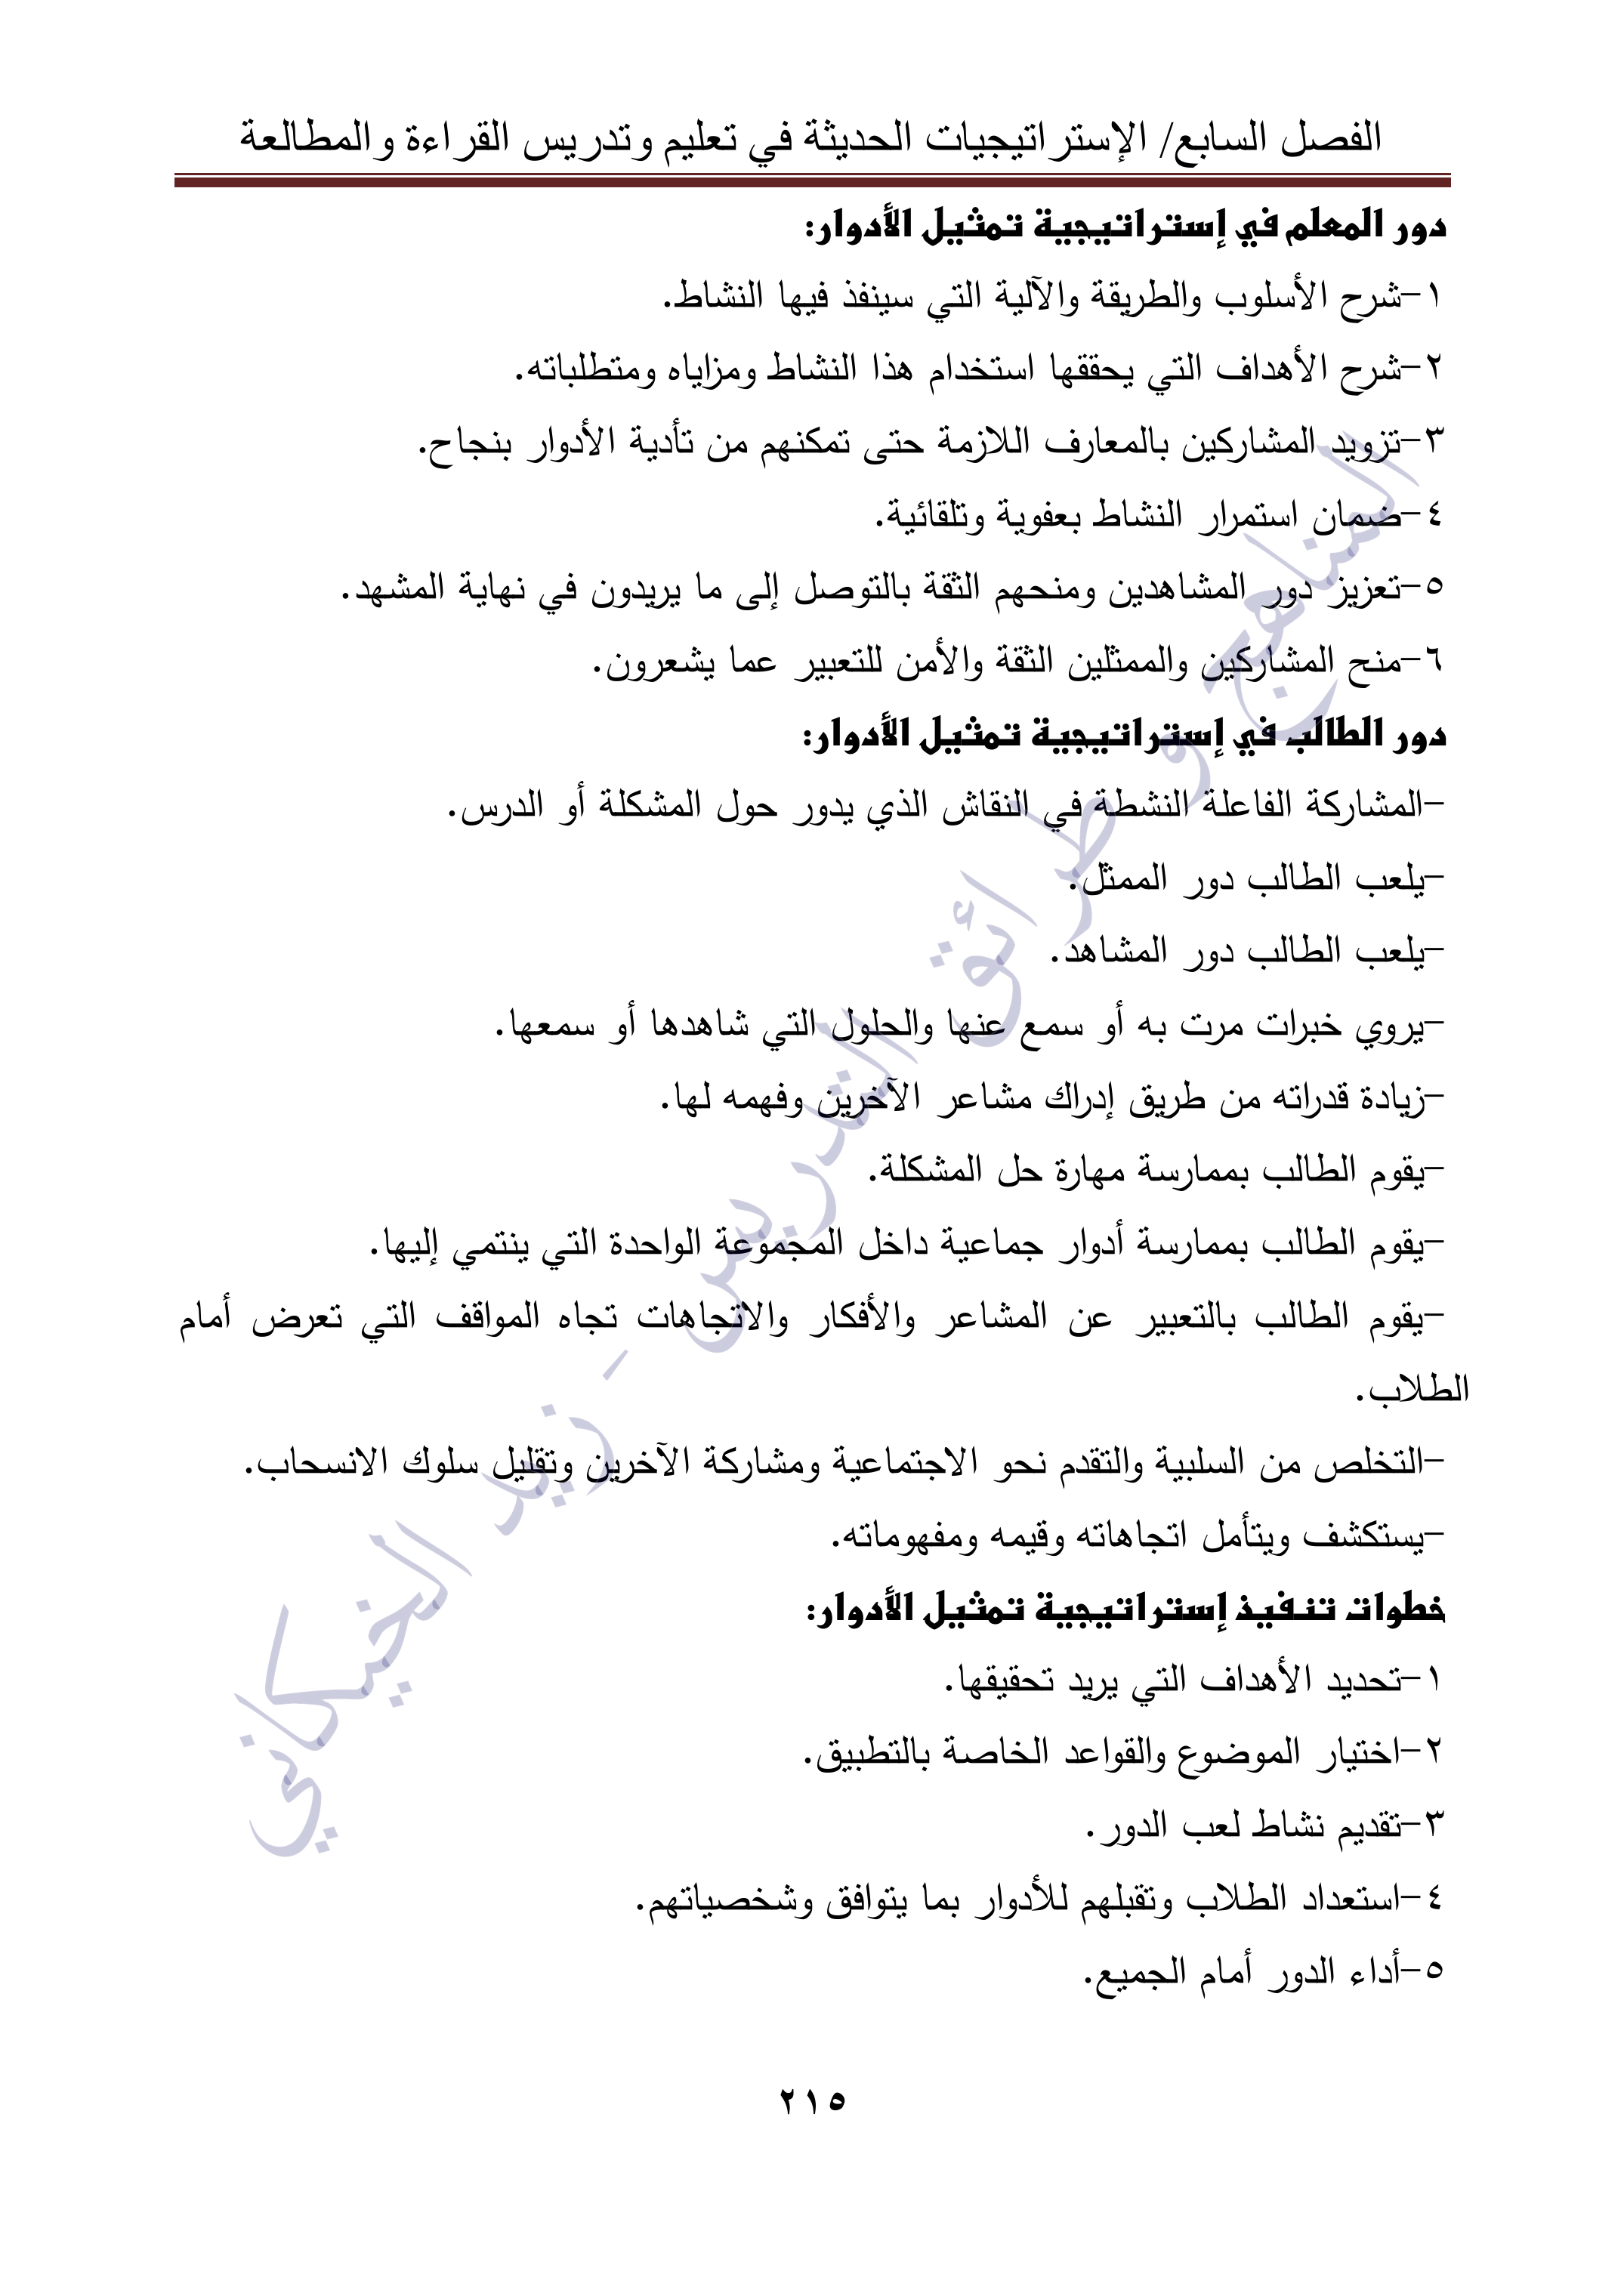 الفصل السابع/ الإستراتيجيات الحديثة في تعليم وتدريس القراءة والمطالعة
دور المعلم في إستراتيجية تمثيل الأدوار:
١-شرح الأسلوب والطريقة والآلية التي سينفذ فيها النشاط.
٢-شرح الأهداف التي يحققها استخدام هذا النشاط ومزاياه ومتطلباته.
٣-تزويد المشاركين بالمعارف اللازمة حتى تمكنهم من تأدية الأدوار بنجاح.
٤-ضمان استمرار النشاط بعفوية وتلقائية.
٥-تعزيز دور المشاهدين ومنحهم الثقة بالتوصل إلى ما يريدون في نهاية المشهد.
٦-منح المشاركين والممثلين الثقة والأمن للتعبير عما يشعرون.
دور الطالب في إستراتيجية تمثيل الأدوار:
-المشاركة الفاعلة النشطة في النقاش الذي يدور حول المشكلة أو الدرس.
-يلعب الطالب دور الممثل.
-يلعب الطالب دور المشاهد.
-يروي خبرات مرت به أو سمع عنها والحلول التي شاهدها أو سمعها.
-زيادة قدراته من طريق إدراك مشاعر الآخرين وفهمه لها.
-يقوم الطالب بممارسة مهارة حل المشكلة.
-يقوم الطالب بممارسة أدوار جماعية داخل المجموعة الواحدة التي ينتمي إليها.
-يقوم الطالب بالتعبير عن المشاعر والأفكار والاتجاهات تجاه المواقف التي تعرض أمام
الطلاب.
-التخلص من السلبية والتقدم نحو الاجتماعية ومشاركة الآخرين وتقليل سلوك الانسحاب.
-يستكشف ويتأمل اتجاهاته وقيمه ومفهوماته.
خطوات تنفيذ إستراتيجية تمثيل الأدوار:
١-تحديد الأهداف التي يريد تحقيقها.
٢-اختيار الموضوع والقواعد الخاصة بالتطبيق.
٣-تقديم نشاط لعب الدور.
٤-استعداد الطلاب وتقبلهم للأدوار بما يتوافق وشخصياتهم.
٥-أداء الدور أمام الجميع.
٢١٥
المناهج و طرائق التدريس - زيد الخيكاني